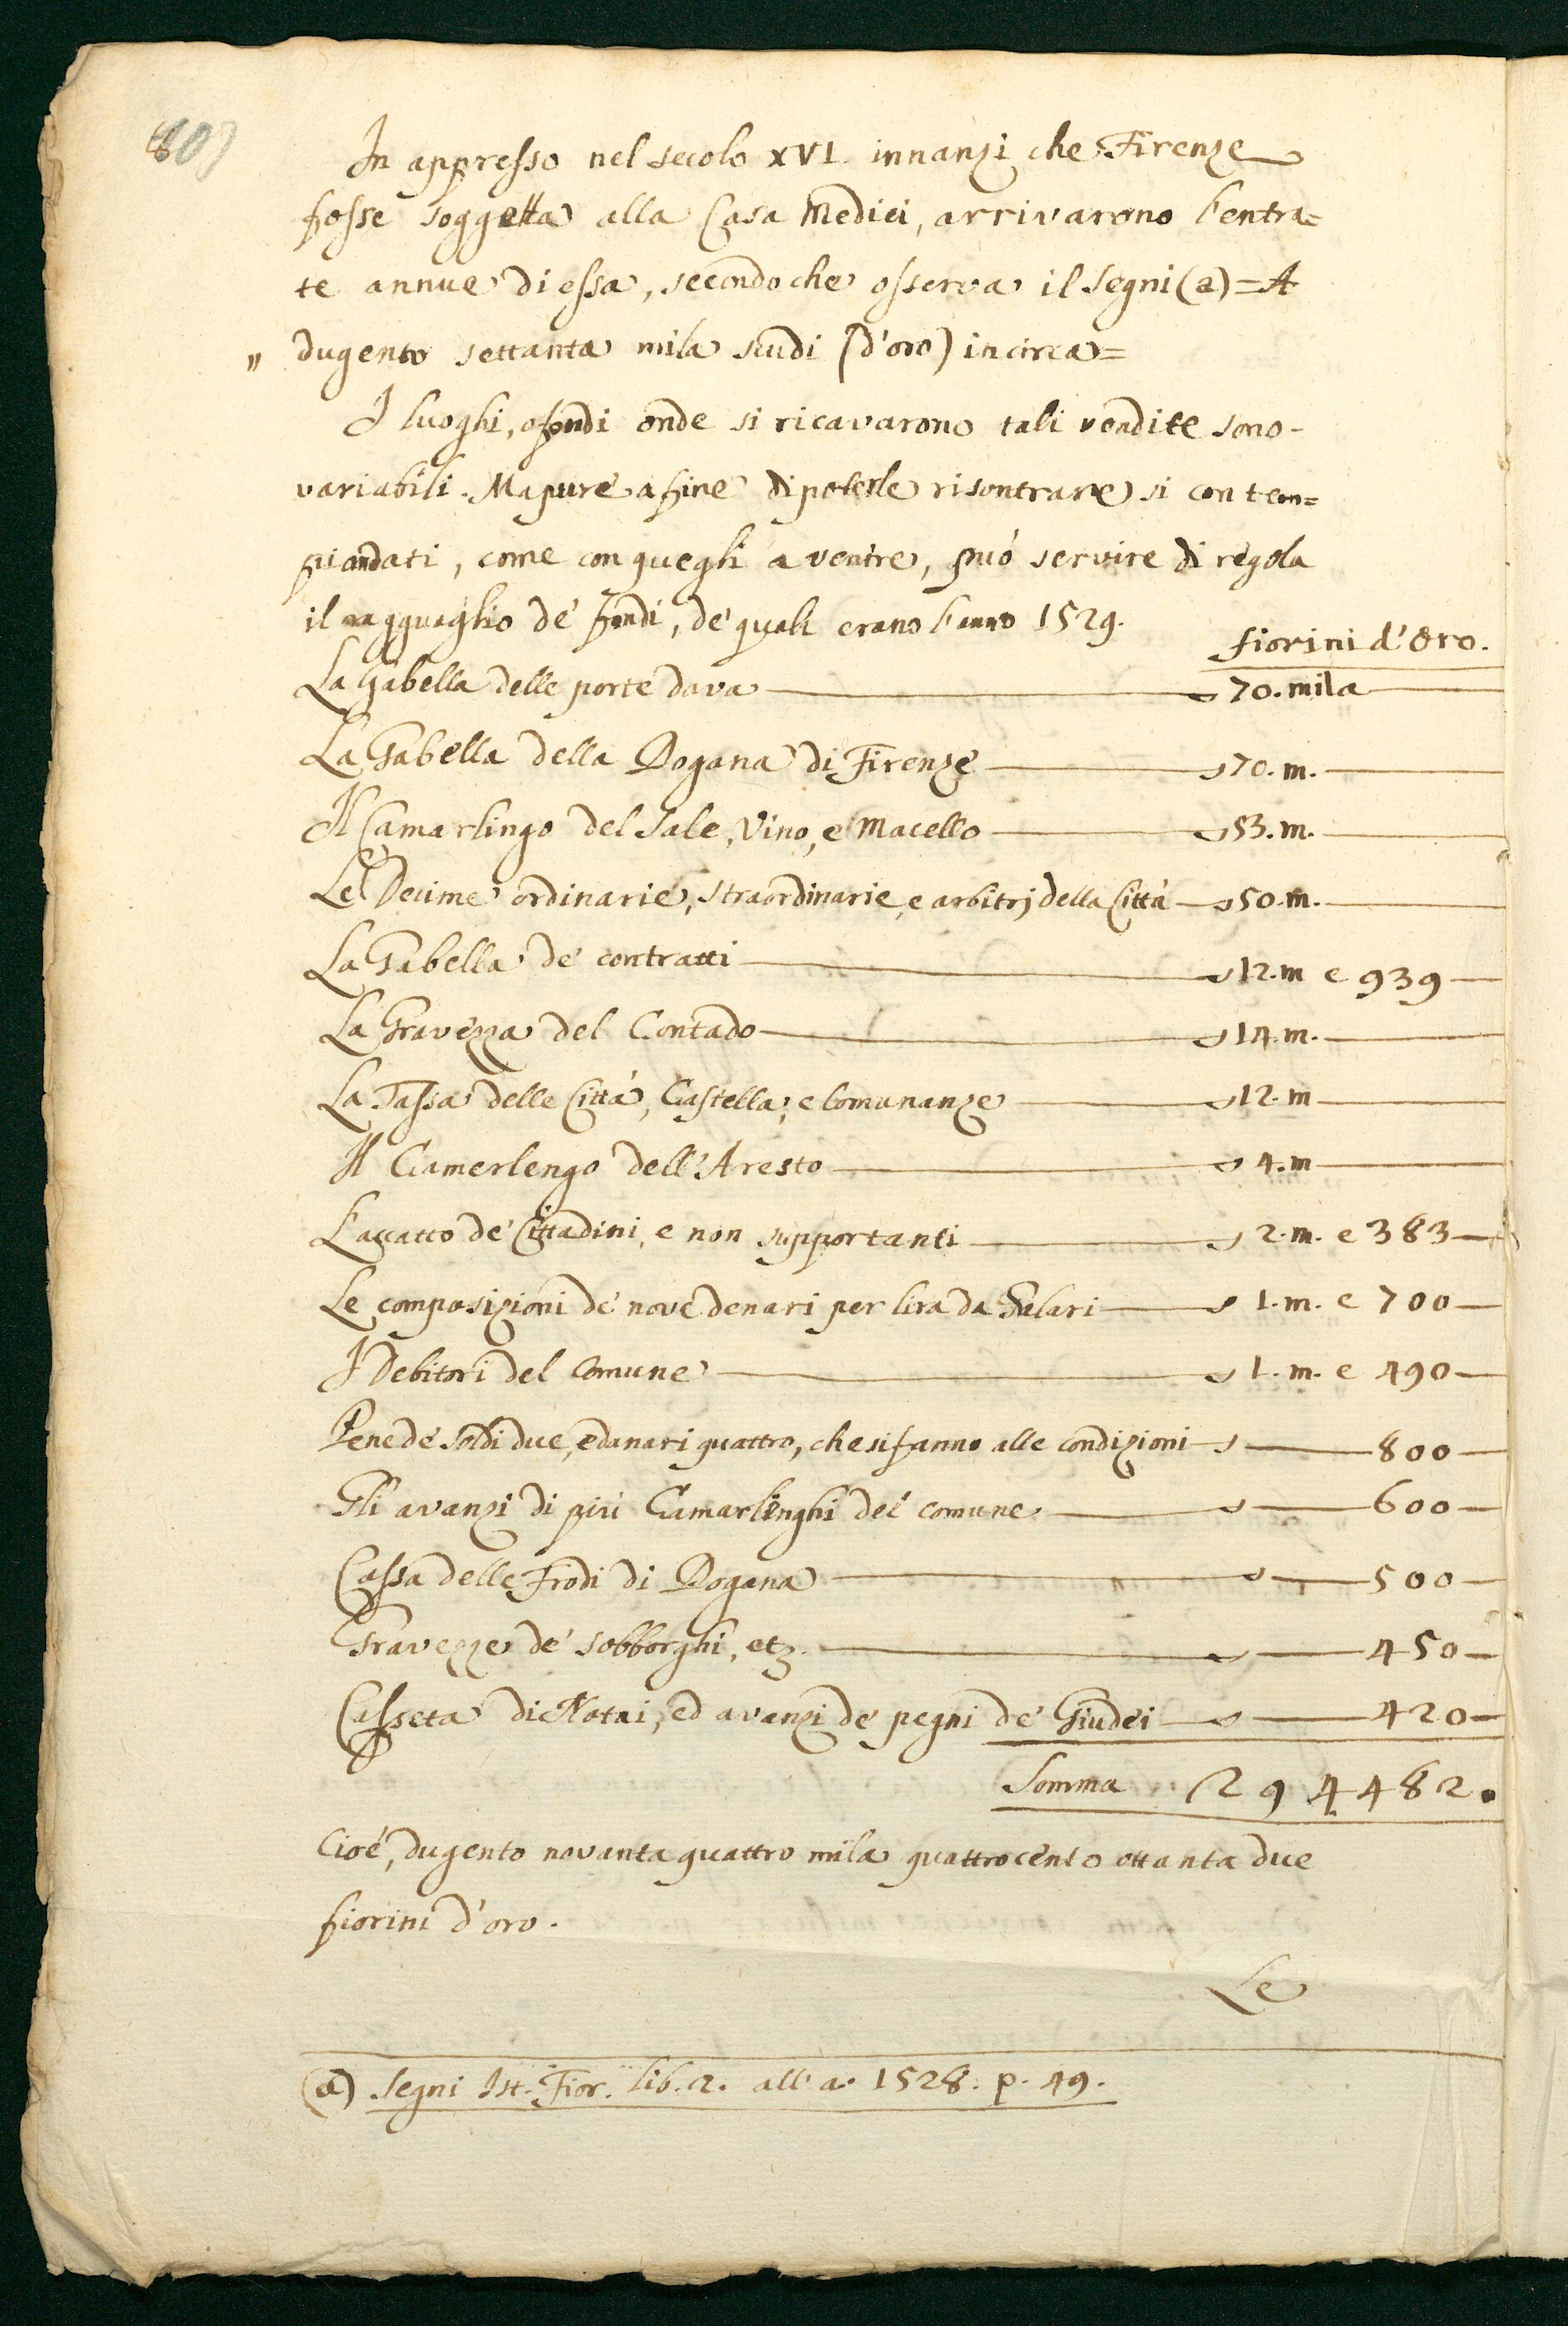 In appresso nel secolo XVI. innanzi che Firenze
fosse soggetta alla Casa Medici, arrivarono l'entra=
te annue di essa, secondo che osserva il Segni (a) = A
" dugento settanta mila scudi (d'oro) in circa =
I luoghi, o fondi onde si ricavarono tali rendite sono
variabili. Ma pure a fine di poterle risontrare si con tem=
pi andati, come con quegli a ventre, può servire di regola
il ragguaglio de' fondi, de' quali erano l'anno 1529.
fiorini d'Oro.
La Gabella delle porte dava — 70. mila
La Gabella della Dogana di Firenze — 70. m.
Il Camarlingo del Sale, Vino, e Macello — 53. m.
Le Decime ordinarie, straordinarie, e arbitrj della Città — 50. m.
La Gabella de' contratti — 12. m e 939
La Gravezza del Contado — 14. m.
La Tassa delle Città, Castella, e Comunanze — 12. m
Il Camerlengo dell'Aresto — 4. m
L'accatto de' Cittadini, e non supportanti — 2. m. e 383
Le composizioni de' nove denari per lira da Salari — 1. m. e 700
I Debitori del Comune — 1. m. e 490
Pene de' soldi due, e danari quattro, che si fanno alle condizioni — 800
Gli avanzi di più Camarlinghi del comune — 600
Cassa delle Frodi di Dogana — 500
Gravezze de' sobborghi, etz. — 450
Casseta di Notai, ed avanzi de' pegni de' Giudei — 420
Somma 294482.
Cioè, dugento novanta quattro mila quattrocento ottanta due
fiorini d'oro.
Le
(a) Segni Ist. Fior. lib. 2. all' a. 1528. p. 49.